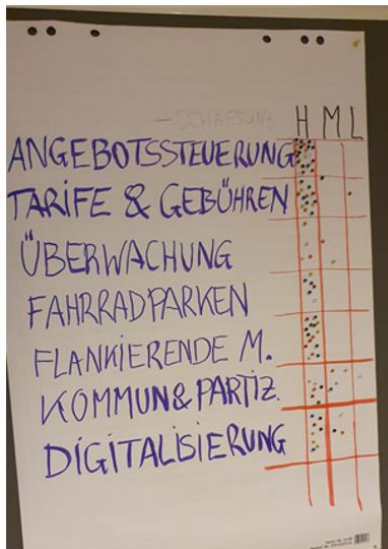 H M L
ANGEBOTSSTEUERUNG
TARIFE & GEBÜHREN
ÜBERWACHUNG
FAHRRADPARKEN
FLANKIERENDE M.
KOMMUN & PARTIZ.
DIGITALISIERUNG